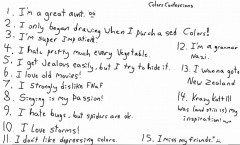 Colors Confessions
1. I'm a great aunt.
2. I only began drawing when I purchased Colors!
3. I'm super impatient
4. I hate pretty much every vegetable
5. I get Jealous easily, but I try to hide it.
6. I love old movies!
7. I strongly dislike FNaF
8. Singing is my passion!
9. I hate bugs, but spiders are ok.
10. I Love storms!
11. I don't like depressing colors.
12. I'm a grammar
Nazi.
13. I wanna go to
New Zealand
14. Krazy Kat111
was (and still is) my
inspiration!
15. I miss my friends.